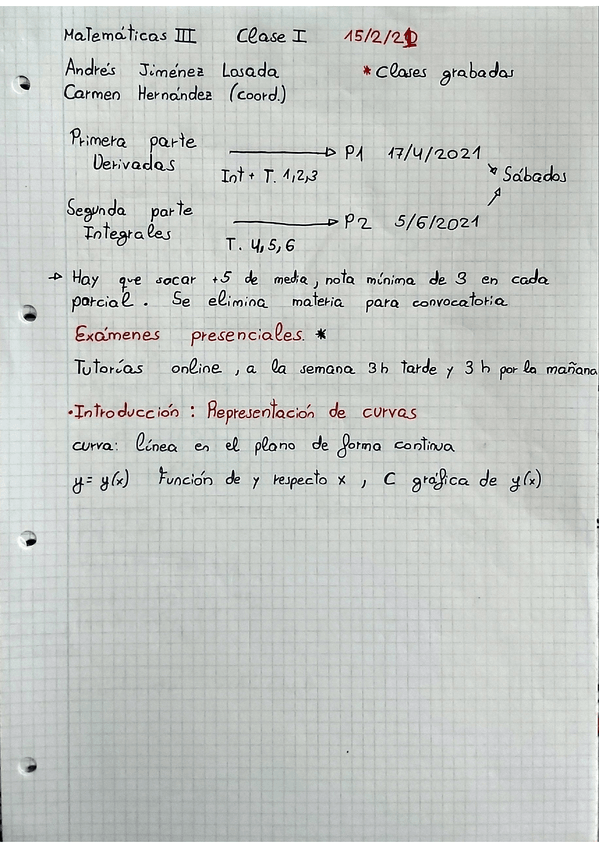 Matemáticas III Clase I 15/2/21
Andrés Jiménez Losada * Clases grabadas
Carmen Hernández (coord.)
Primera parte → P1 17/4/2021
Derivadas Int + T. 1,2,3
Sábados
Segunda parte → P2 5/6/2021
Integrales T. 4,5,6
→ Hay que sacar +5 de media, nota mínima de 3 en cada
parcial. Se elimina materia para convocatoria
Exámenes presenciales. *
Tutorías online, a la semana 3h tarde y 3 h por la mañana
•Introducción: Representación de curvas
curva: línea en el plano de forma continua
y= y(x) Función de y respecto x, C gráfica de y(x)